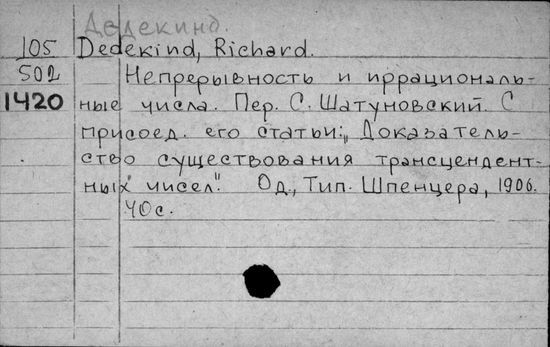 Дедекинд.
105 Dedekind, Richard.
502 Непрерывность и иррациональ-
1420 ные числа. Пер. С. Шатуновский. С
присоед. его статьи: „Доказатель-
ство существования трансцендент-
ных чисел". Од., Тип. Шпенцера, 1906.
40с.